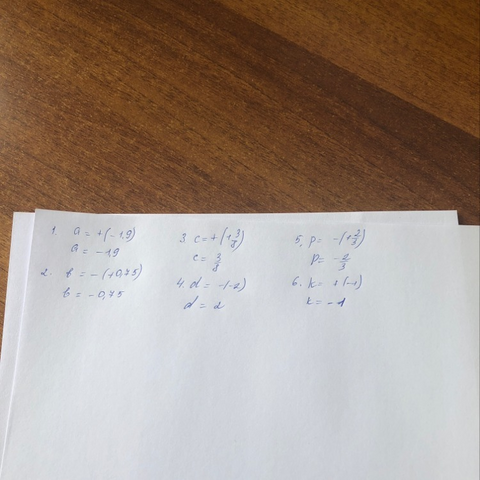 1. a = +(-1,9)
a = -1,9
2. b = -(+0,75)
b = -0,75
3. c = +(+3/8)
c = 3/8
4. d = -(-2)
d = 2
5. p = -(+2/3)
p = -2/3
6. k = +(-1)
k = -1